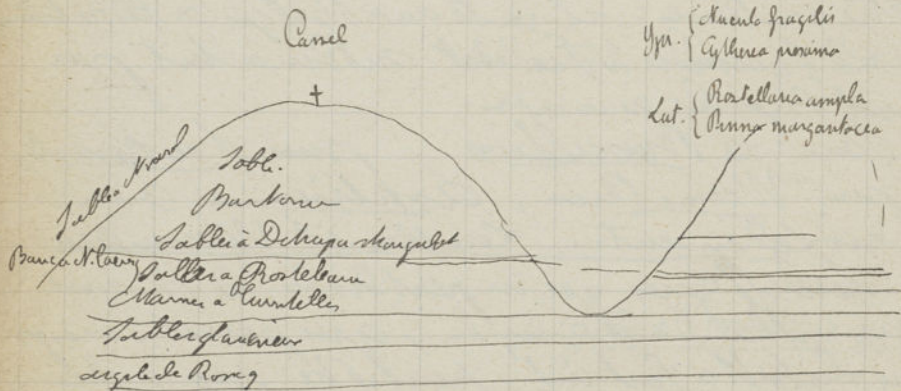 Cassel
Ypr. { Nucula fragilis
Cytherea proxima
Lut. { Rostellaria ampla
Pinna margaritacea
Sables à N. var.
Sable.
Bartonien
Sables à
Banc à N. laevig
Sables à Rostellaria
Marnes à Turritelles
Sables glauconieux
argile de Roncq